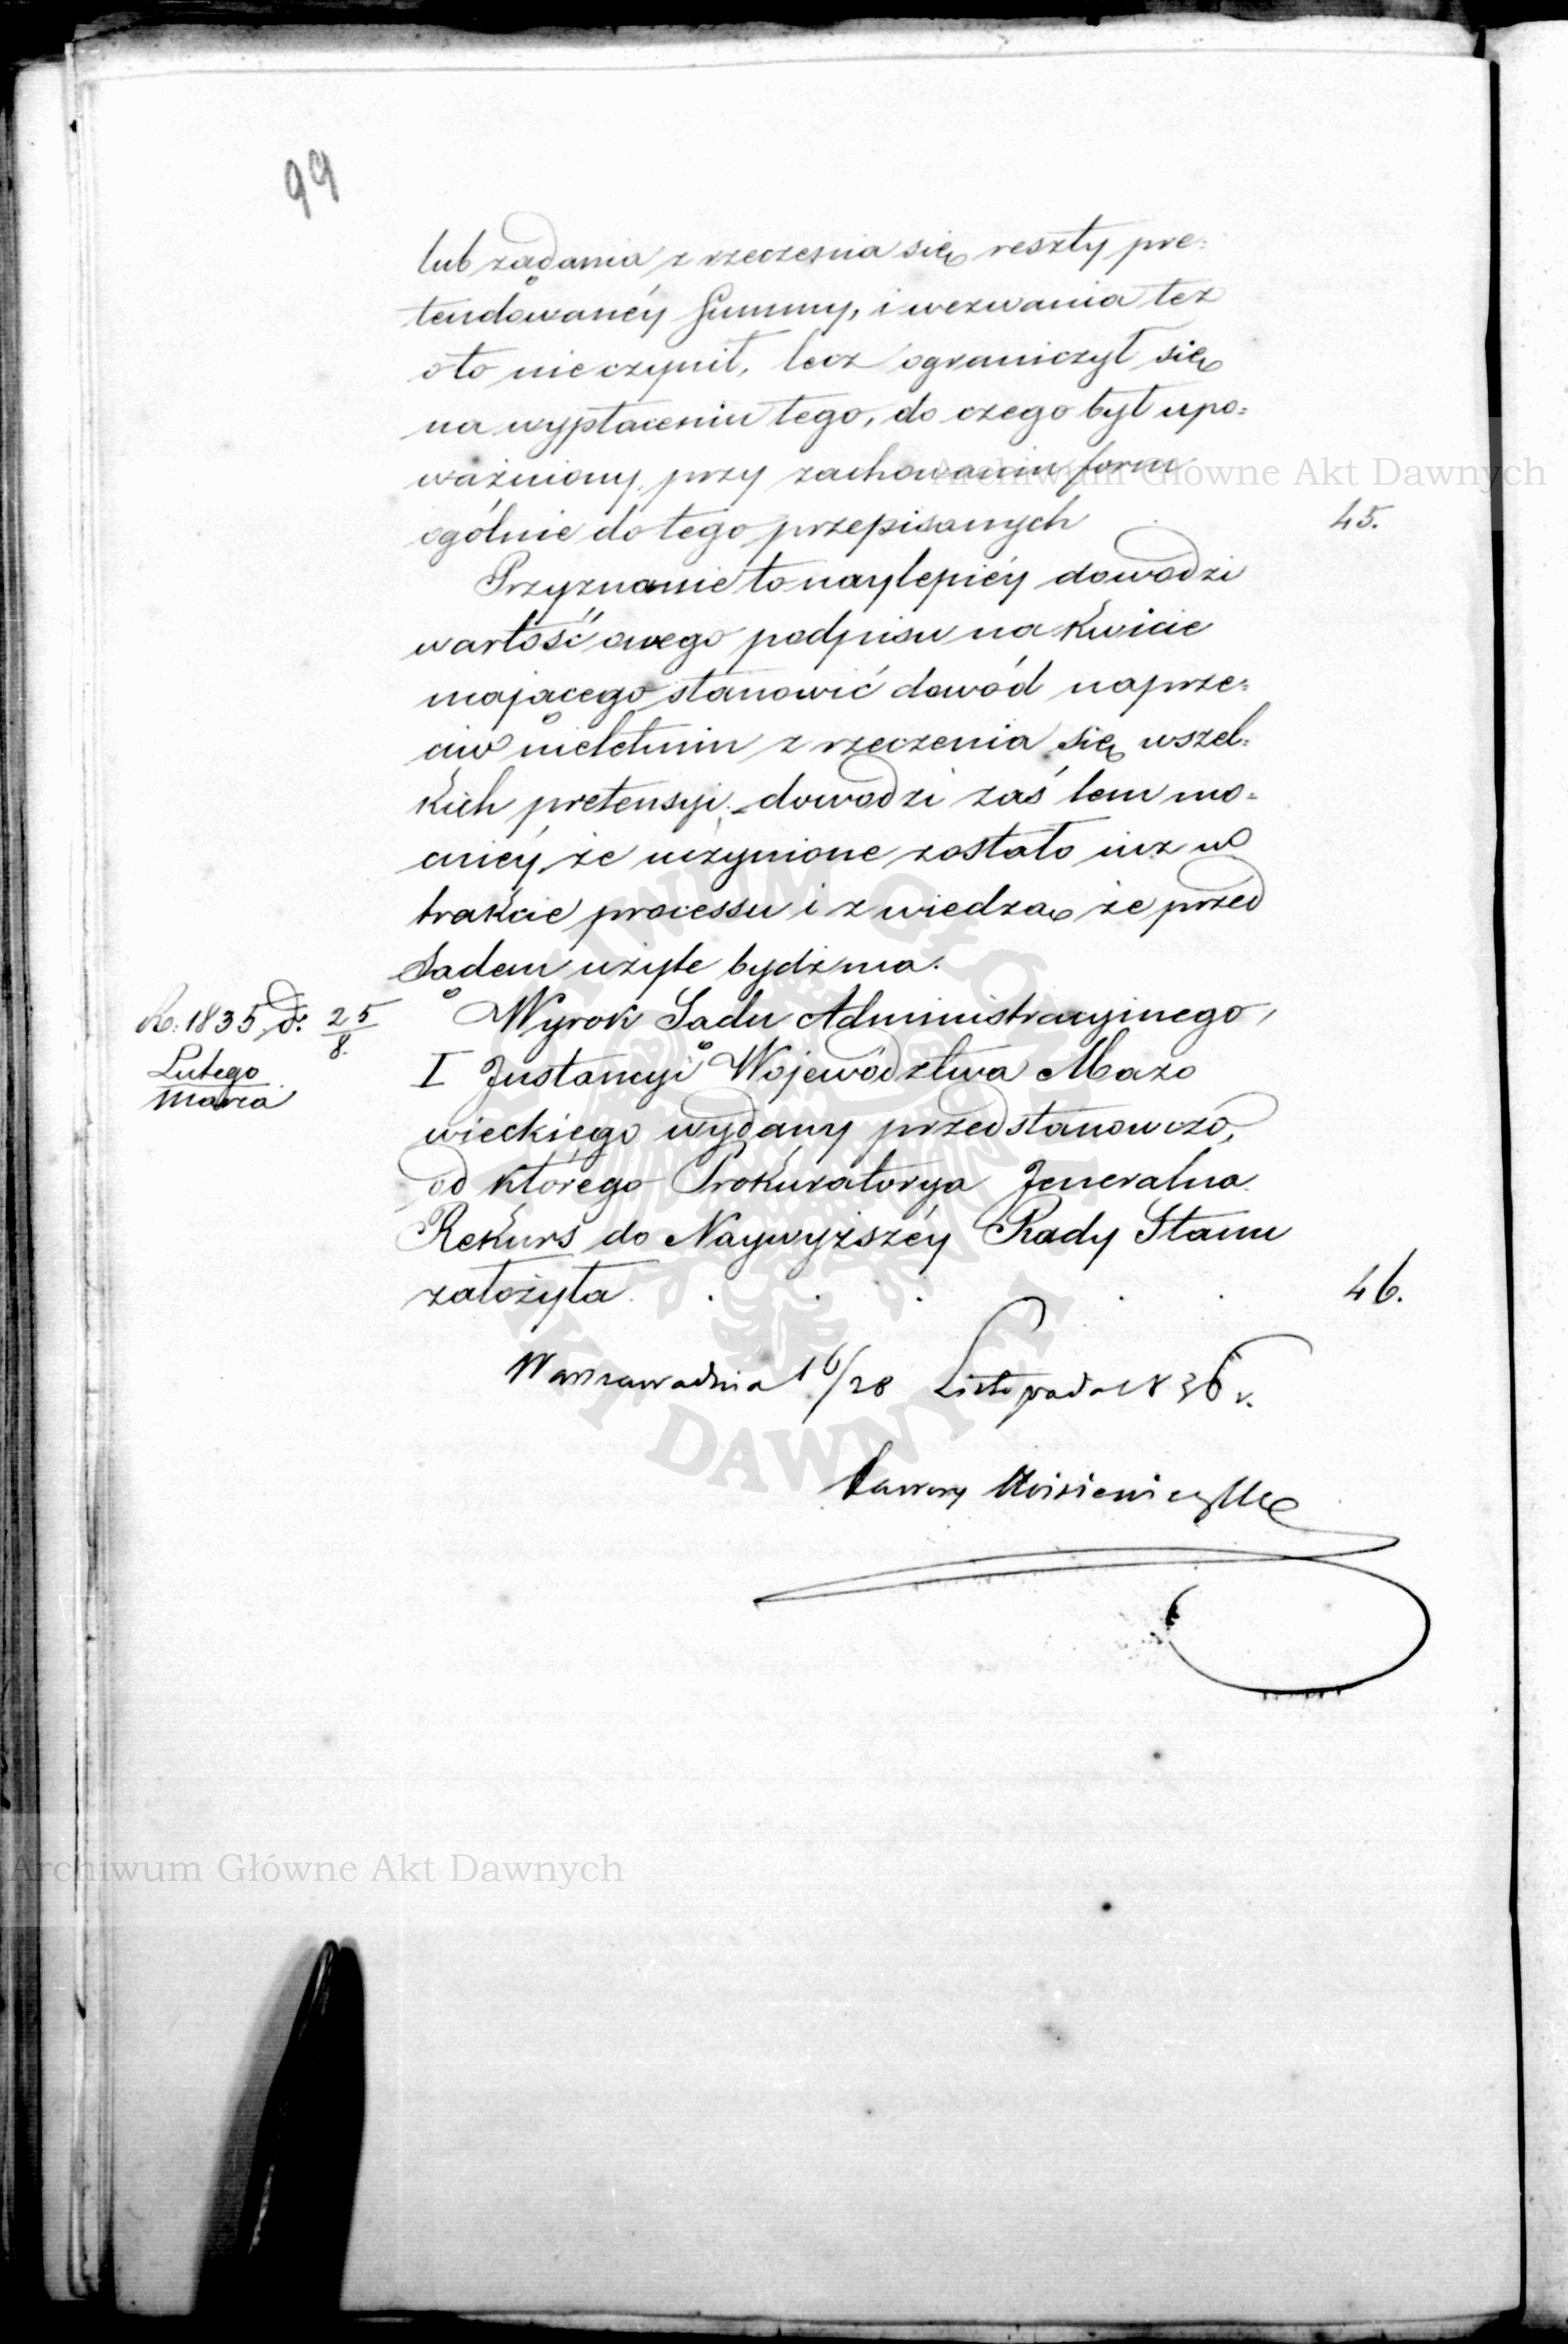 99
lub żądania zrzeczenia się reszty pre=
tendowanéy Summy, i wezwania też
oto nie czynił, lecz ograniczył się
na wypłaceniu tego, do czego był upo=
ważniony przy zachowaniu form
ogólnie do tego przepisanych 45.
Przyznanie to naylepiéy dowodzi
wartość owego podpisu na Kwicie
mającego stanowić dowód naprze=
ciw nieletnim zrzeczenia się wszel=
kich pretensyi. dowodzi zaś tem mo=
cniéy, że uczynione zostało iuż w
trakcie processu i z wiedzą że przed
Sądem użyte bydź ma.
R: 1835 d: 25/8.
Lutego
Marca
Wyrok Sądu Administracyinego,
I Instancyi Województwa Mazo
wieckiego wydany przedstanowczo,
od którego Prokuratorya Jeneralna
Rekurs do Naywyższéy Rady Stanu
założyła . . . . . . 46.
Warszawa dnia 16/28 Listopada 1836 r.
Archiwum Główne Akt Dawnych
ARCHIWUM GŁÓWNE
AKT DAWNYCH
Archiwum Główne Akt Dawnych